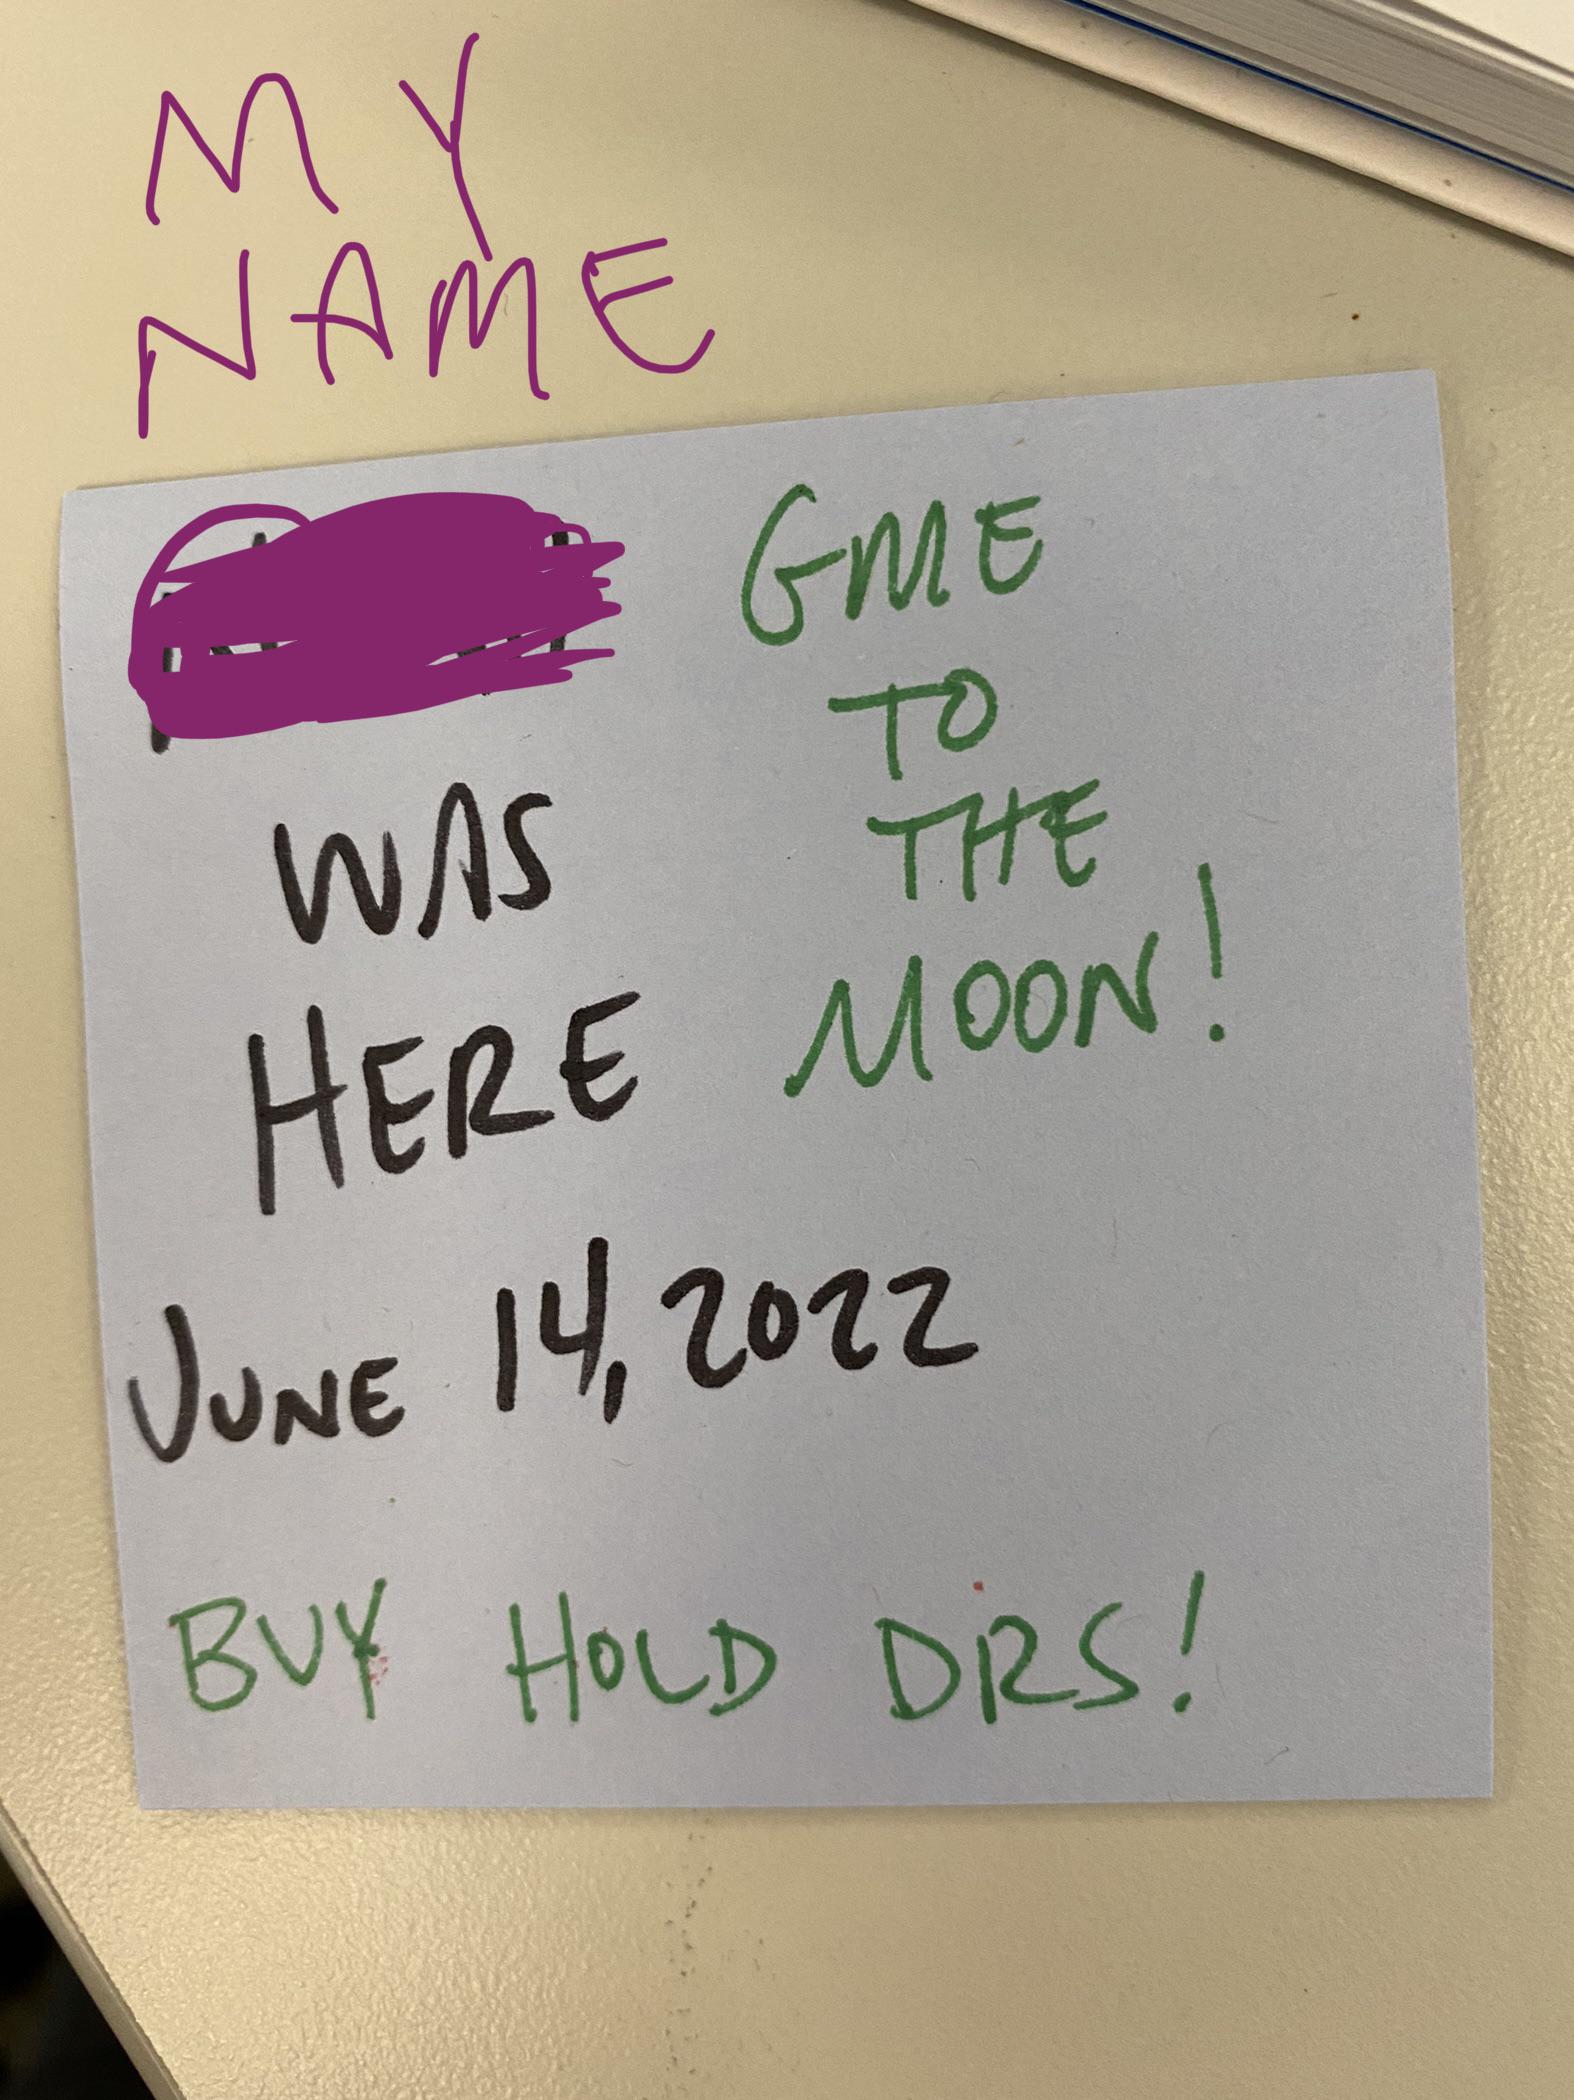 MY
NAME
WAS
HERE
JUNE 14, 2022
GME
TO
THE
MOON!
BUY HOLD DRS!